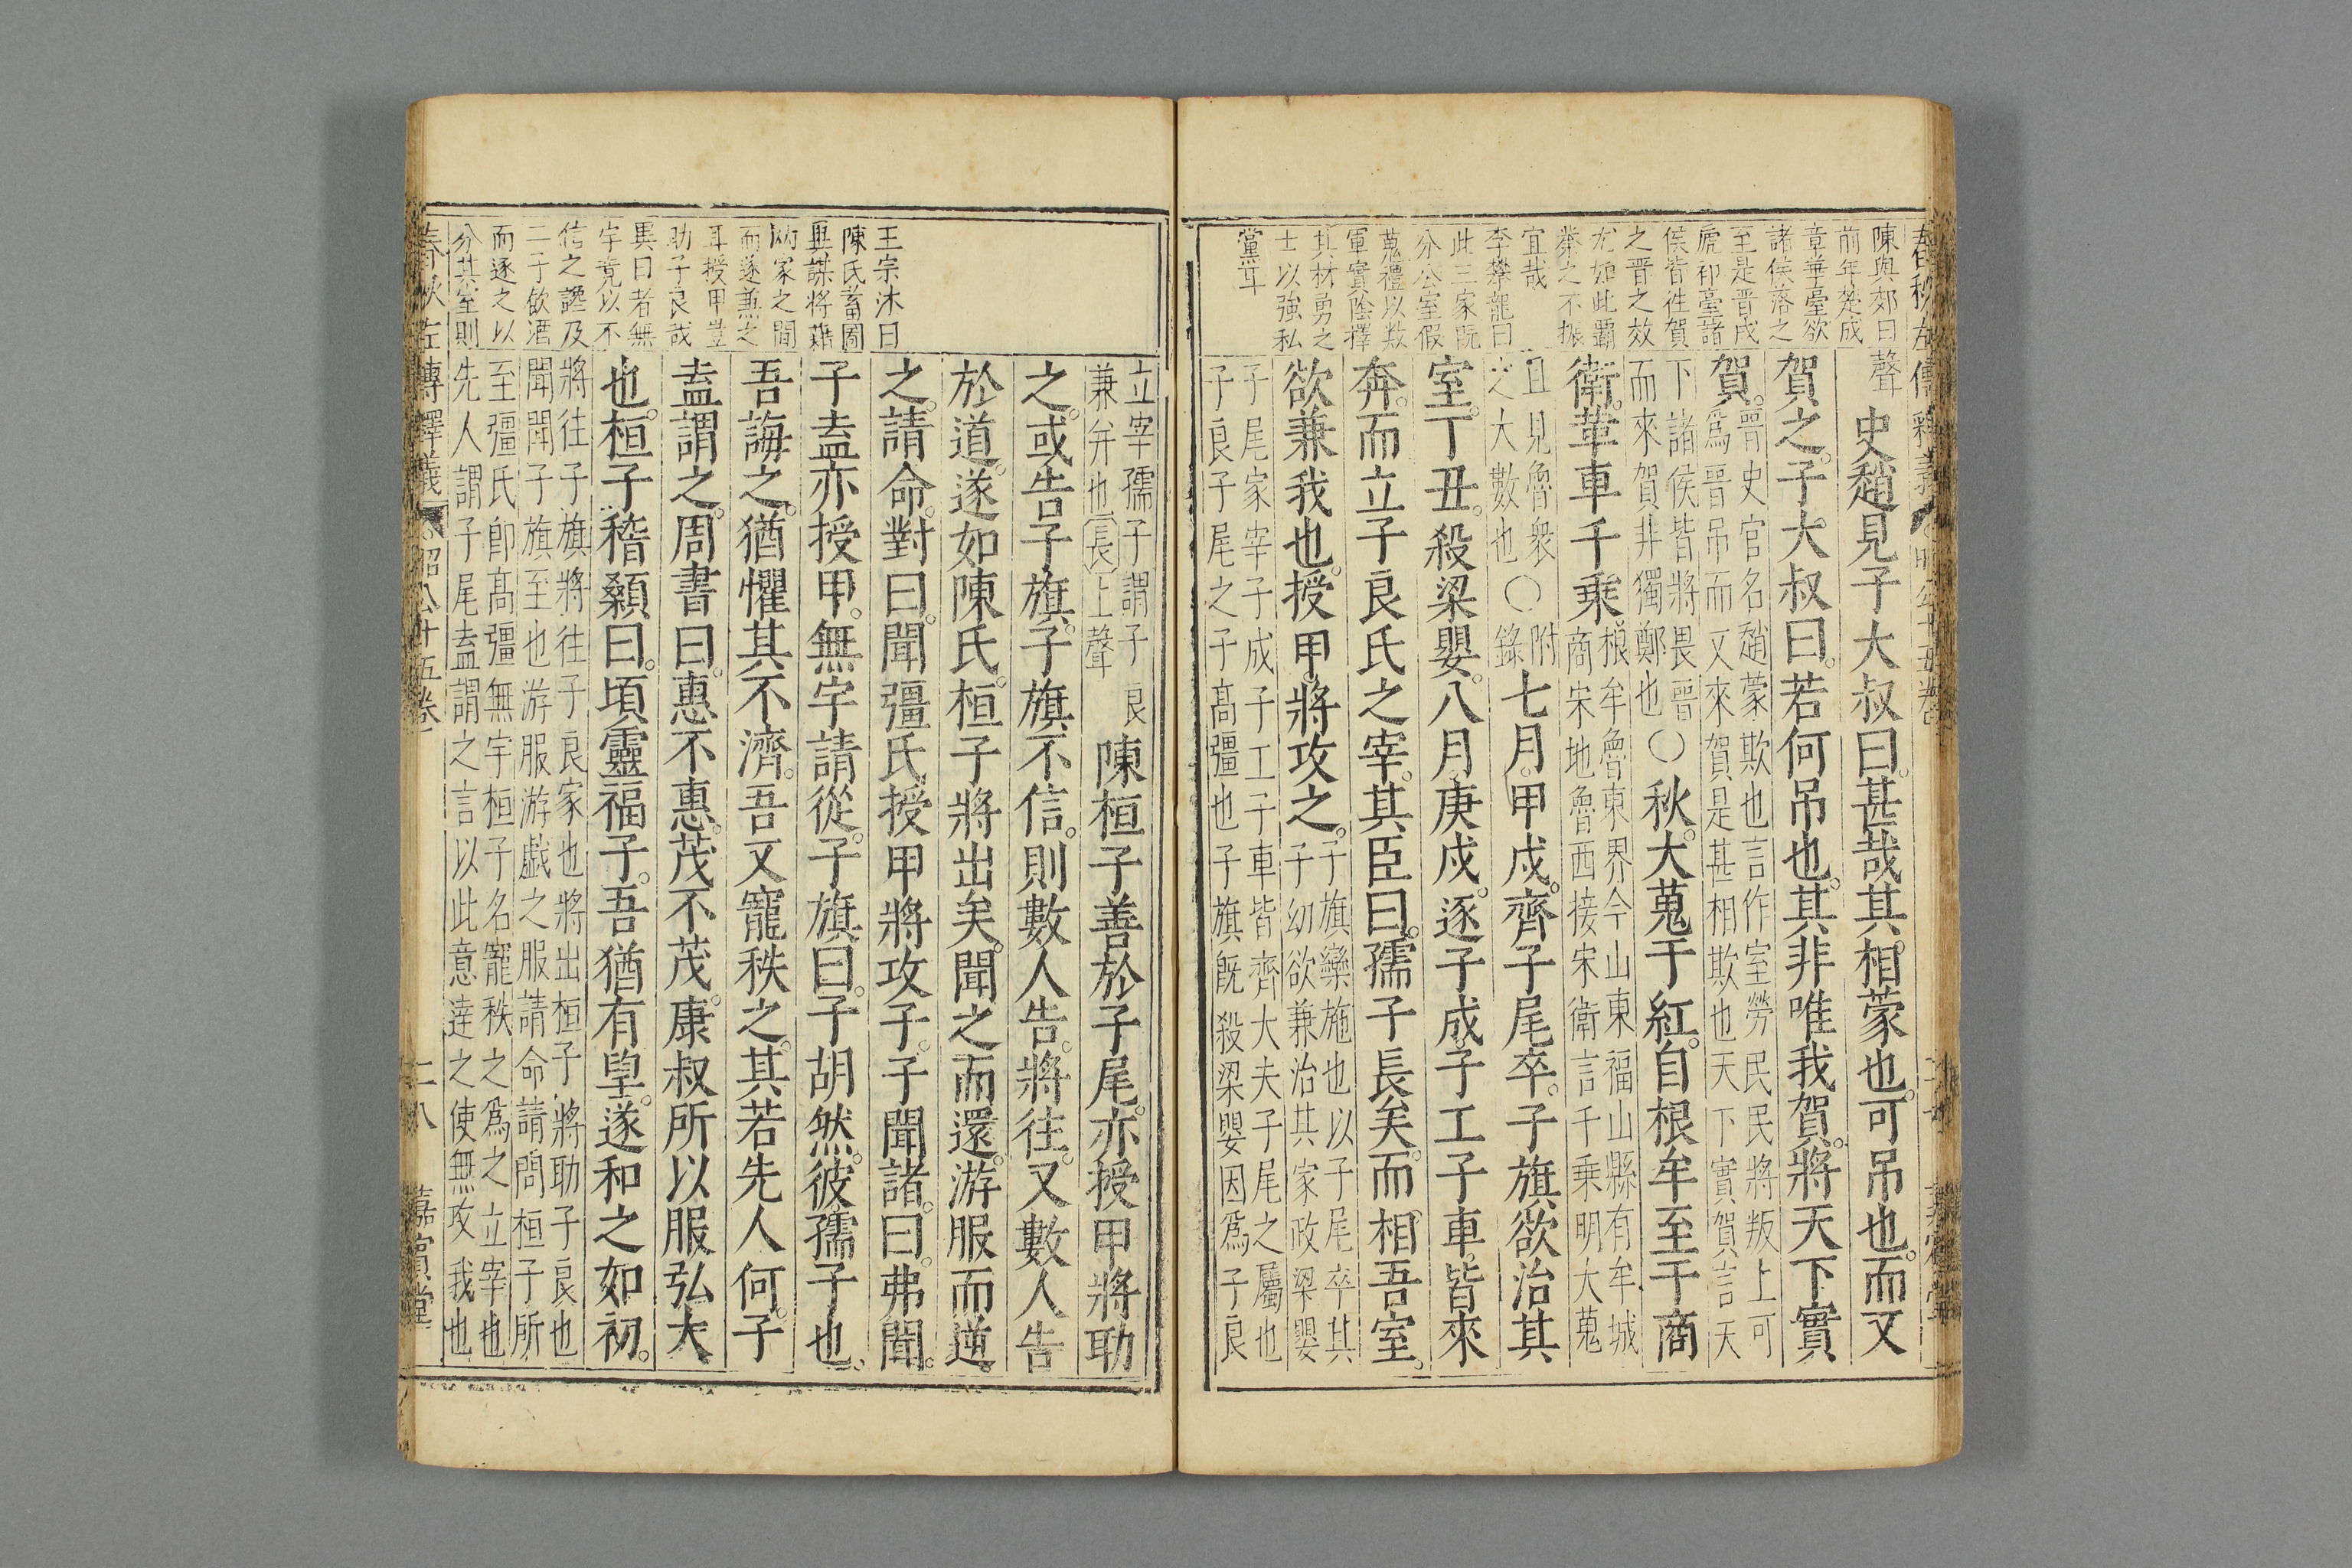 春秋左傳釋義
陳與郊曰
前年楚成
章華臺欲
諸侯落之
至是晉成
虒祁臺諸
侯皆徃賀
之晉之效
尤如此霸
業之不振
宜哉
李攀龍曰
此三家既
分公室假
蒐禮以数
軍實陰擇
其材勇之
士以強私
黨耳
聲 史趙見子大叔曰。甚哉其相蒙也。可吊也。而又
賀之。子大叔曰。若何吊也。其非唯我賀。將天下實
賀。晉史官名趙蒙欺也言作室勞民民將叛上可
爲晉吊而又來賀是甚相欺也天下實賀言天
下諸侯皆將畏晉
而來賀非獨鄭也○
秋。大蒐于紅。自根牟至于商
衛。革車千乗
根牟魯東界今山東福山縣有牟城
商宋地魯西接宋衛言千乗明大蒐
且見魯衆
之大數也
○附錄
七月。甲戌。齊子尾卒。子旗欲治其
室。丁丑。殺梁嬰。八月。庚戌。逐子成子工子車。皆來
奔。而立子良氏之宰。其臣曰。孺子長矣。而相吾室。
欲兼我也。授甲。將攻之。
子旗欒施也以子尾卒其
子幼欲兼治其家政梁嬰
子尾家宰子成子工子車皆齊大夫子尾之屬也
子良子尾之子高彊也子旗旣殺梁嬰因爲子良
王宗沐曰
陳氏蓄圖
異謀將藉
兩家之間
而遂兼之
耳授甲豈
助子良哉
異日者無
宇竟以不
信之讒及
二子飲酒
而逐之以
分其室則
立宰孺子謂子良
兼并也長上聲
陳桓子善於子尾。亦授甲將助
之。或告子旗。子旗不信。則數人告。將往。又數人告
於道。遂如陳氏。桓子將出矣。聞之而還。游服而逆
之。請命。對曰。聞彊氏授甲將攻子。子聞諸。曰。弗聞。
子盍亦授甲。無宇請從。子旗曰。子胡然。彼孺子也。
吾誨之。猶懼其不濟。吾又寵秩之。其若先人何。子
盍謂之。周書曰。惠不惠。茂不茂。康叔所以服弘大
也。桓子稽顙曰。頃靈福子。吾猶有望。遂和之如初。
將往子旗將往子良家也將出桓子將助子良也
聞聞子旗至也游服游戲之服請命請問桓子所
至彊氏卽高彊無宇桓子名寵秩之爲之立宰也
先人謂子尾盍謂之言以此意達之使無攻我也
春秋左傳釋義 昭公十五卷 二八 嘉賓堂